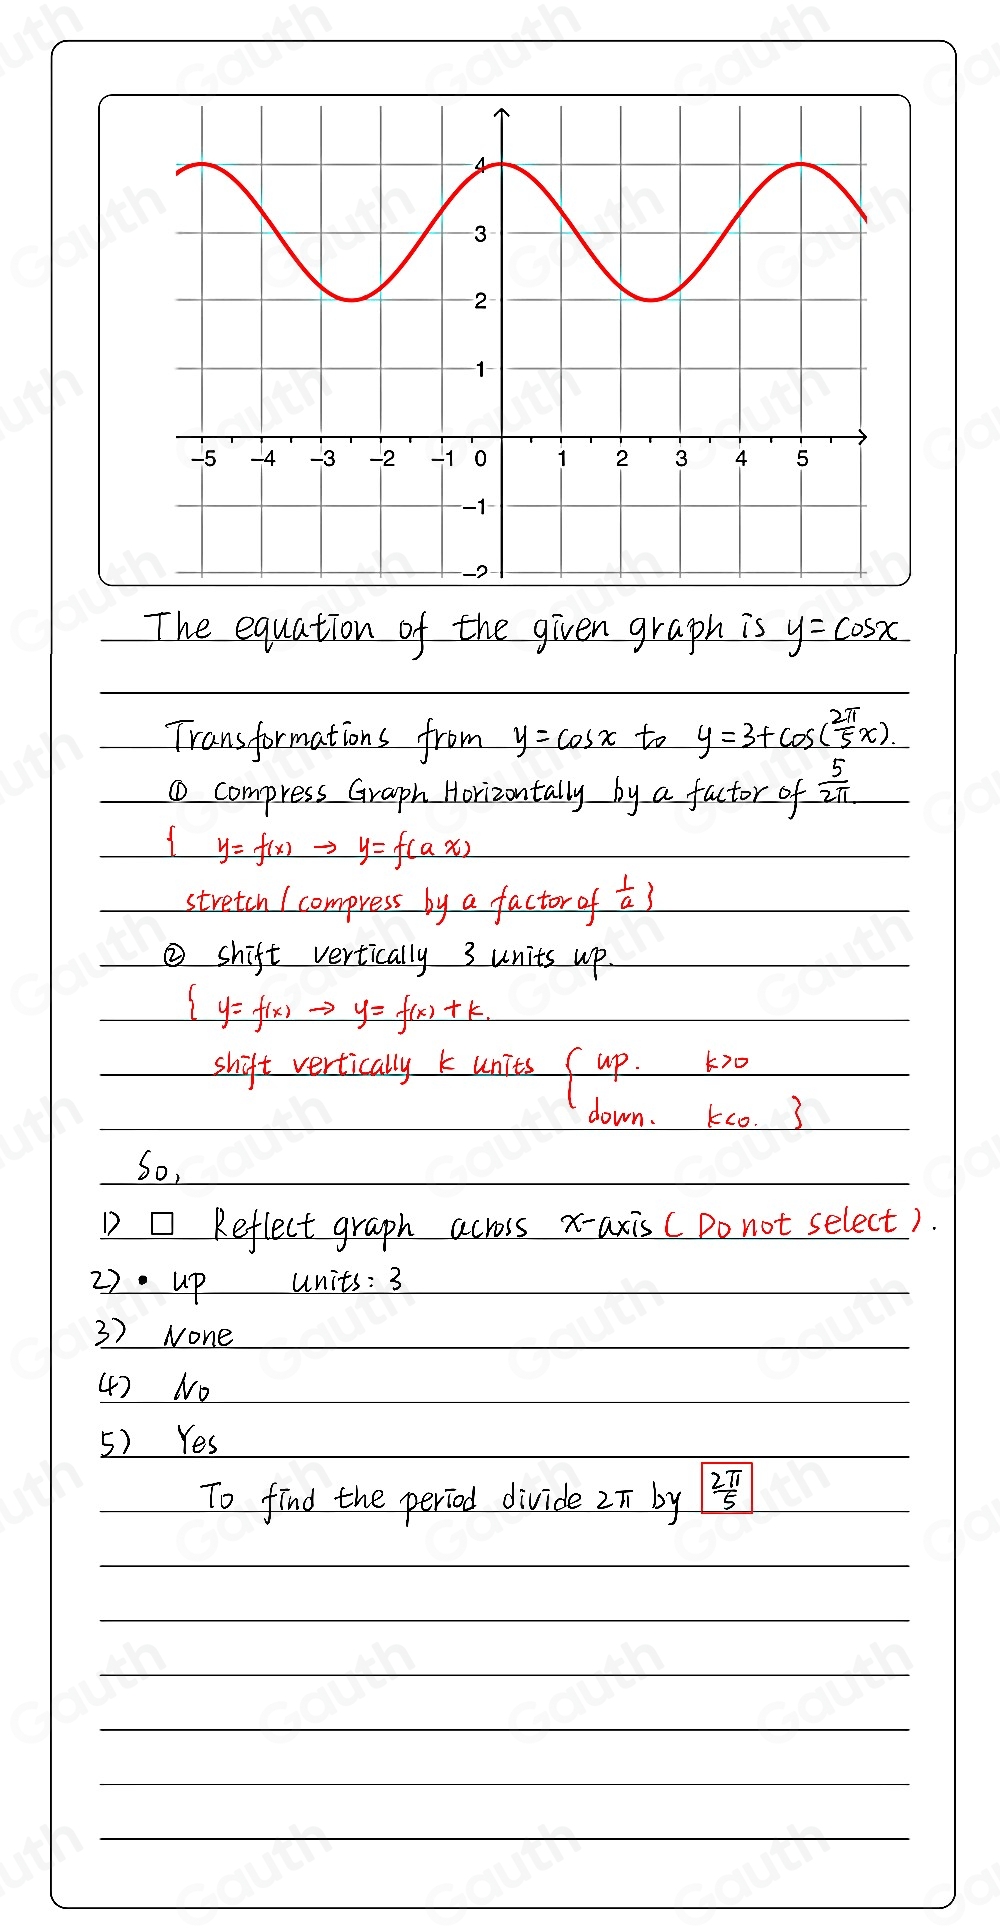 4
3
2
1
-5 -4 -3 -2 -1 0 1 2 3 4 5
-1
-2
The equation of the given graph is y=cosx
Transformations from y=cosx to y=3+cos(2π/5 x).
① Compress Graph Horizontally by a factor of 5/2π.
{ y=f(x) → y=f(ax)
stretch/compress by a factor of 1/a }
② shift vertically 3 units up.
{ y=f(x) → y=f(x)+k.
shift vertically k units { up. k>0
down. k<0. }
So,
1) □ Reflect graph across x-axis (Do not select).
2) • up units: 3
3) None
4) No
5) Yes
To find the period divide 2π by 2π/5
Gauth